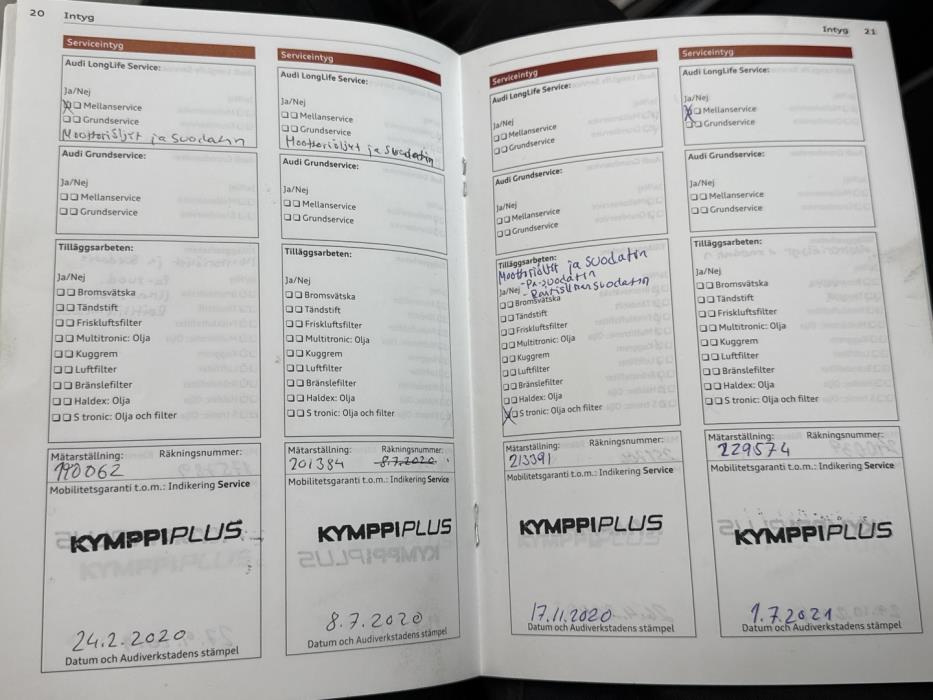 20 Intyg
Serviceintyg
Audi LongLife Service:
Ja/Nej
Mellanservice
Grundservice
Moottoriöljyt ja suodatin
Audi Grundservice:
Ja/Nej
Mellanservice
Grundservice
Tilläggsarbeten:
Ja/Nej
Bromsvätska
Tändstift
Friskluftsfilter
Multitronic: Olja
Kuggrem
Luftfilter
Bränslefilter
Haldex: Olja
S tronic: Olja och filter
Mätarställning: Räkningsnummer:
190062
Mobilitetsgaranti t.o.m.: Indikering Service
KYMPPIPLUS
24.2.2020
Datum och Audiverkstadens stämpel
Serviceintyg
Audi LongLife Service:
Ja/Nej
Mellanservice
Grundservice
Moottoriöljyt ja suodatin
Audi Grundservice:
Ja/Nej
Mellanservice
Grundservice
Tilläggsarbeten:
Ja/Nej
Bromsvätska
Tändstift
Friskluftsfilter
Multitronic: Olja
Kuggrem
Luftfilter
Bränslefilter
Haldex: Olja
S tronic: Olja och filter
Mätarställning: Räkningsnummer:
201384 8.7.2020
Mobilitetsgaranti t.o.m.: Indikering Service
KYMPPIPLUS
8.7.2020
Datum och Audiverkstadens stämpel
Intyg 21
Serviceintyg
Audi LongLife Service:
Ja/Nej
Mellanservice
Grundservice
Audi Grundservice:
Ja/Nej
Mellanservice
Grundservice
Tilläggsarbeten:
Moottoriöljyt ja suodatin
Ja/Nej -PA-suodatin
-Raitisilmansuodatin
Bromsvätska
Tändstift
Friskluftsfilter
Multitronic: Olja
Kuggrem
Luftfilter
Bränslefilter
Haldex: Olja
S tronic: Olja och filter
Mätarställning: Räkningsnummer:
213391
Mobilitetsgaranti t.o.m.: Indikering Service
KYMPPIPLUS
17.11.2020
Datum och Audiverkstadens stämpel
Serviceintyg
Audi LongLife Service:
Ja/Nej
Mellanservice
Grundservice
Audi Grundservice:
Ja/Nej
Mellanservice
Grundservice
Tilläggsarbeten:
Ja/Nej
Bromsvätska
Tändstift
Friskluftsfilter
Multitronic: Olja
Kuggrem
Luftfilter
Bränslefilter
Haldex: Olja
S tronic: Olja och filter
Mätarställning: Räkningsnummer:
229574
Mobilitetsgaranti t.o.m.: Indikering Service
KYMPPIPLUS
1.7.2021
Datum och Audiverkstadens stämpel